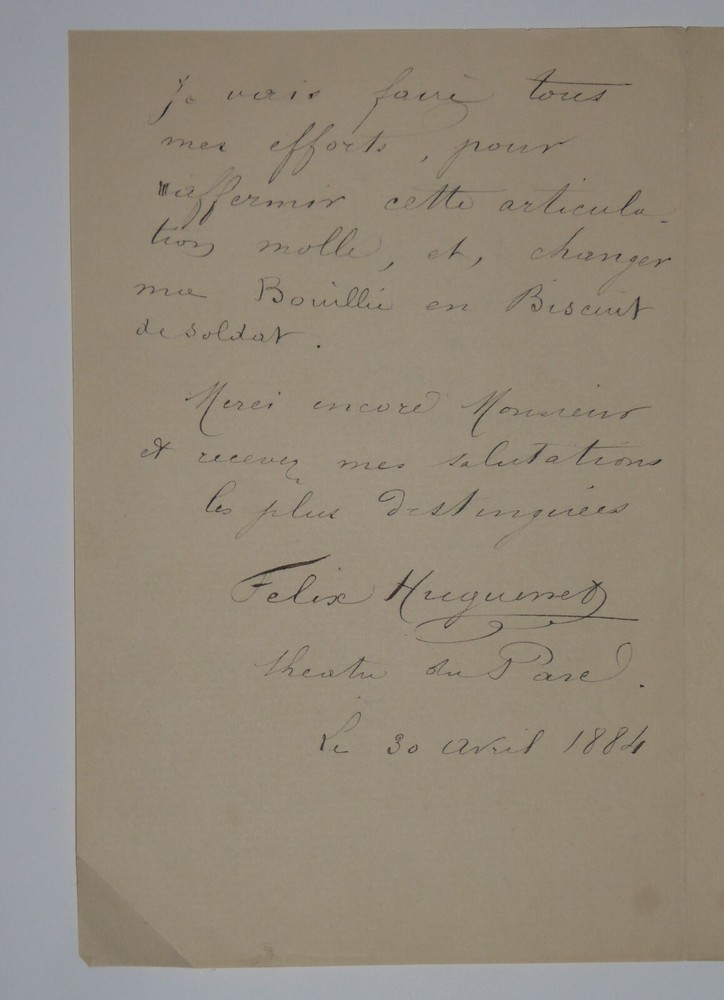 Je vais faire tous
mes efforts, pour
raffermir cette articula-
tion molle, et, changer
ma Bouillie en Biscuit
de soldat.
Merci encore Monsieur
et recevez mes salutations
les plus distinguées
Felix Huguenet
theatre du Parc.
Le 30 Avril 1884